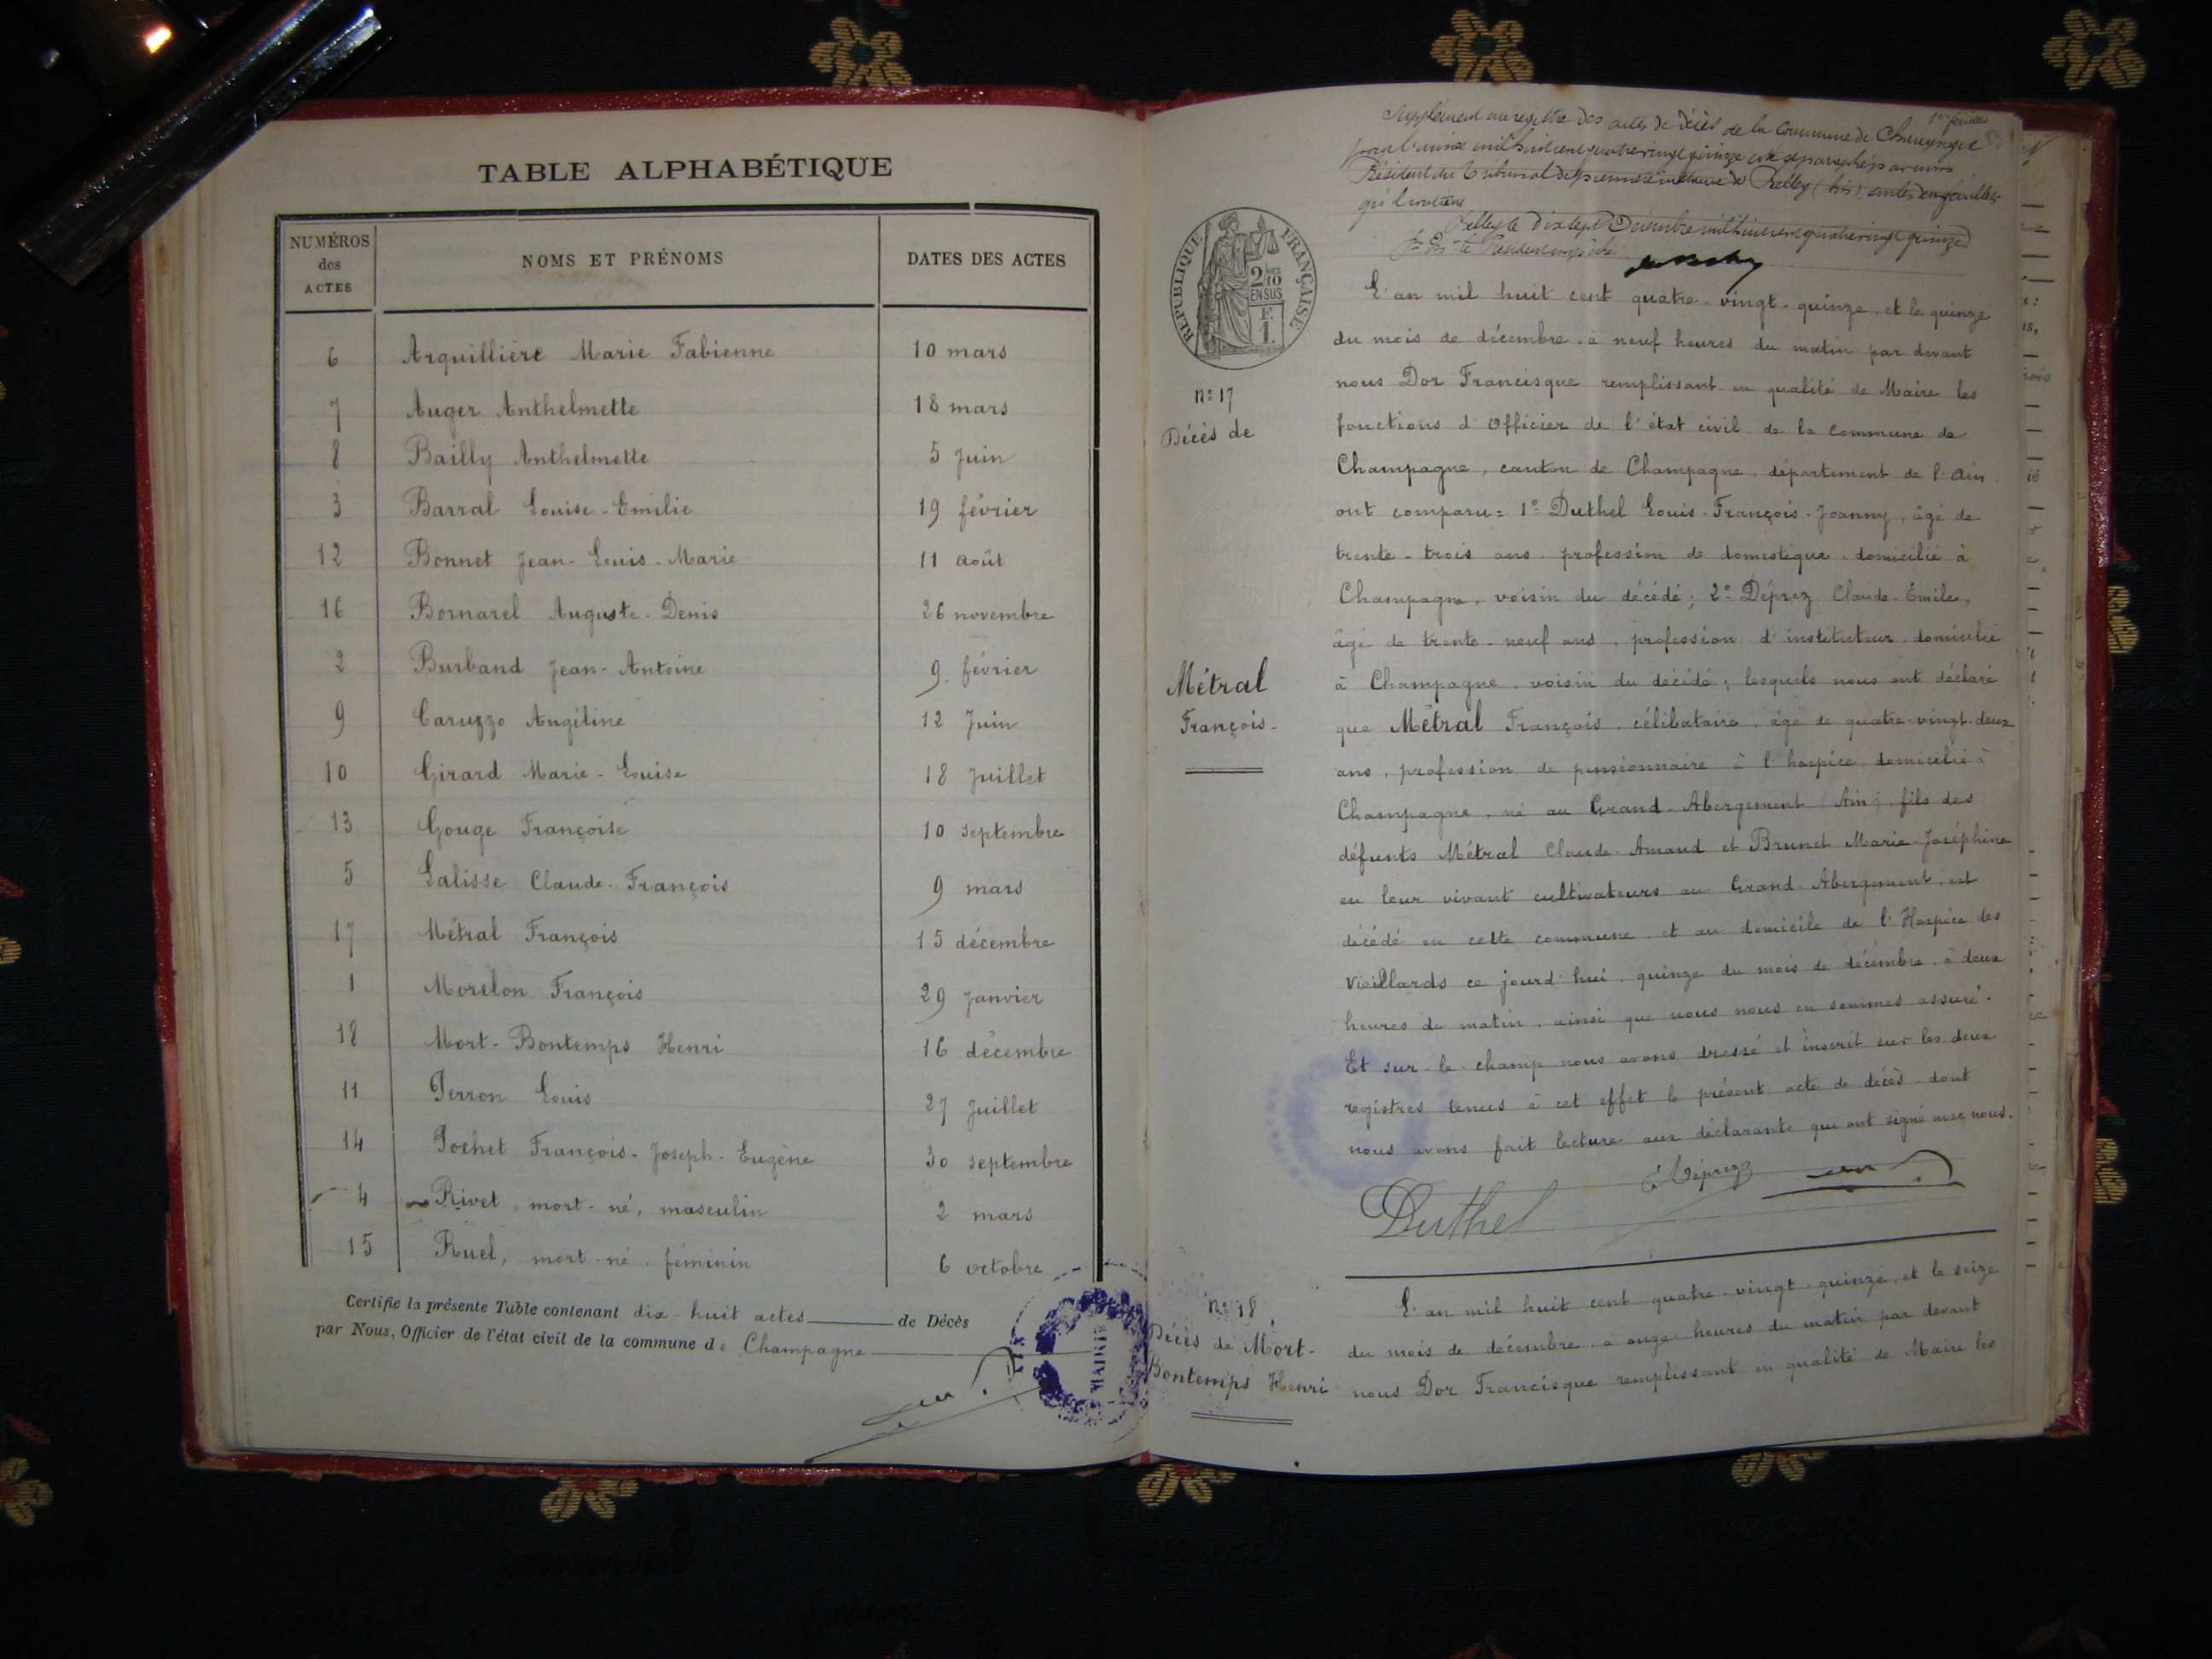 TABLE ALPHABÉTIQUE
NUMÉROS des ACTES
NOMS ET PRÉNOMS
DATES DES ACTES
6 Arquillière Marie Fabienne 10 mars
7 Auger Anthelmette 18 mars
8 Bailly Anthelmette 5 Juin
3 Barral Louise-Emilie 19 février
12 Bonnet Jean-Louis-Marie 11 Août
16 Bornarel Auguste-Denis 26 novembre
2 Burband Jean-Antoine 9 février
9 Caruzzo Angéline 12 Juin
10 Girard Marie-Louise 18 Juillet
13 Gouge Françoise 10 septembre
5 Lalisse Claude-François 9 mars
17 Métral François 15 décembre
1 Morelon François 29 Janvier
18 Mort-Bontemps Henri 16 décembre
11 Perron Louis 27 Juillet
14 Pochet François-Joseph-Eugène 30 septembre
4 Rivet, mort-né, masculin 2 mars
15 Ruel, mort-né, féminin 6 octobre
Certifié la présente Table contenant dix-huit actes de Décès
par Nous, Officier de l'état civil de la commune de Champagne
MAIRIE
Supplément au registre des actes de décès de la Commune de Champagne
pour l'année mil huit cent quatre vingt quinze coté et paraphé par nous
Président du Tribunal de première instance de Belley
qu'il contient
Belley le dix sept Décembre mil huit cent quatre vingt quinze
RÉPUBLIQUE FRANÇAISE
2/10 EN SUS
E. 1.
n° 17
Décès de
Métral
François-
L'an mil huit cent quatre-vingt-quinze, et le quinze
du mois de décembre, à neuf heures du matin par devant
nous Dor Francisque remplissant en qualité de Maire les
fonctions d'Officier de l'état civil de la commune de
Champagne, canton de Champagne, département de l'Ain
ont comparu = 1° Duthel Louis-François-Joanny, âgé de
trente-trois ans, profession de domestique, domicilié à
Champagne, voisin du décédé; 2° Déprez Claude-Émile,
âgé de trente-neuf ans, profession d'instituteur, domicilié
à Champagne, voisin du décédé; lesquels nous ont déclaré
que Métral François, célibataire, âgé de quatre-vingt-deux
ans, profession de pensionnaire à l'hospice, domicilié à
Champagne, né au Grand-Abergement Ain; fils des
défunts Métral Claude-Amand et Brunet Marie-Joséphine
en leur vivant cultivateurs au Grand-Abergement, est
décédé en cette commune, et au domicile de l'Hospice des
Vieillards ce jourd'hui, quinze du mois de décembre, à deux
heures du matin, ainsi que nous nous en sommes assuré.
Et sur-le-champ nous avons dressé et inscrit sur les deux
registres tenus à cet effet le présent acte de décès dont
nous avons fait lecture aux déclarants qui ont signé avec nous.
Duthel
Déprez
n° 18
Décès de Mort-
Bontemps Henri
L'an mil huit cent quatre-vingt-quinze, et le seize
du mois de décembre, à onze heures du matin par devant
nous Dor Francisque remplissant en qualité de Maire les